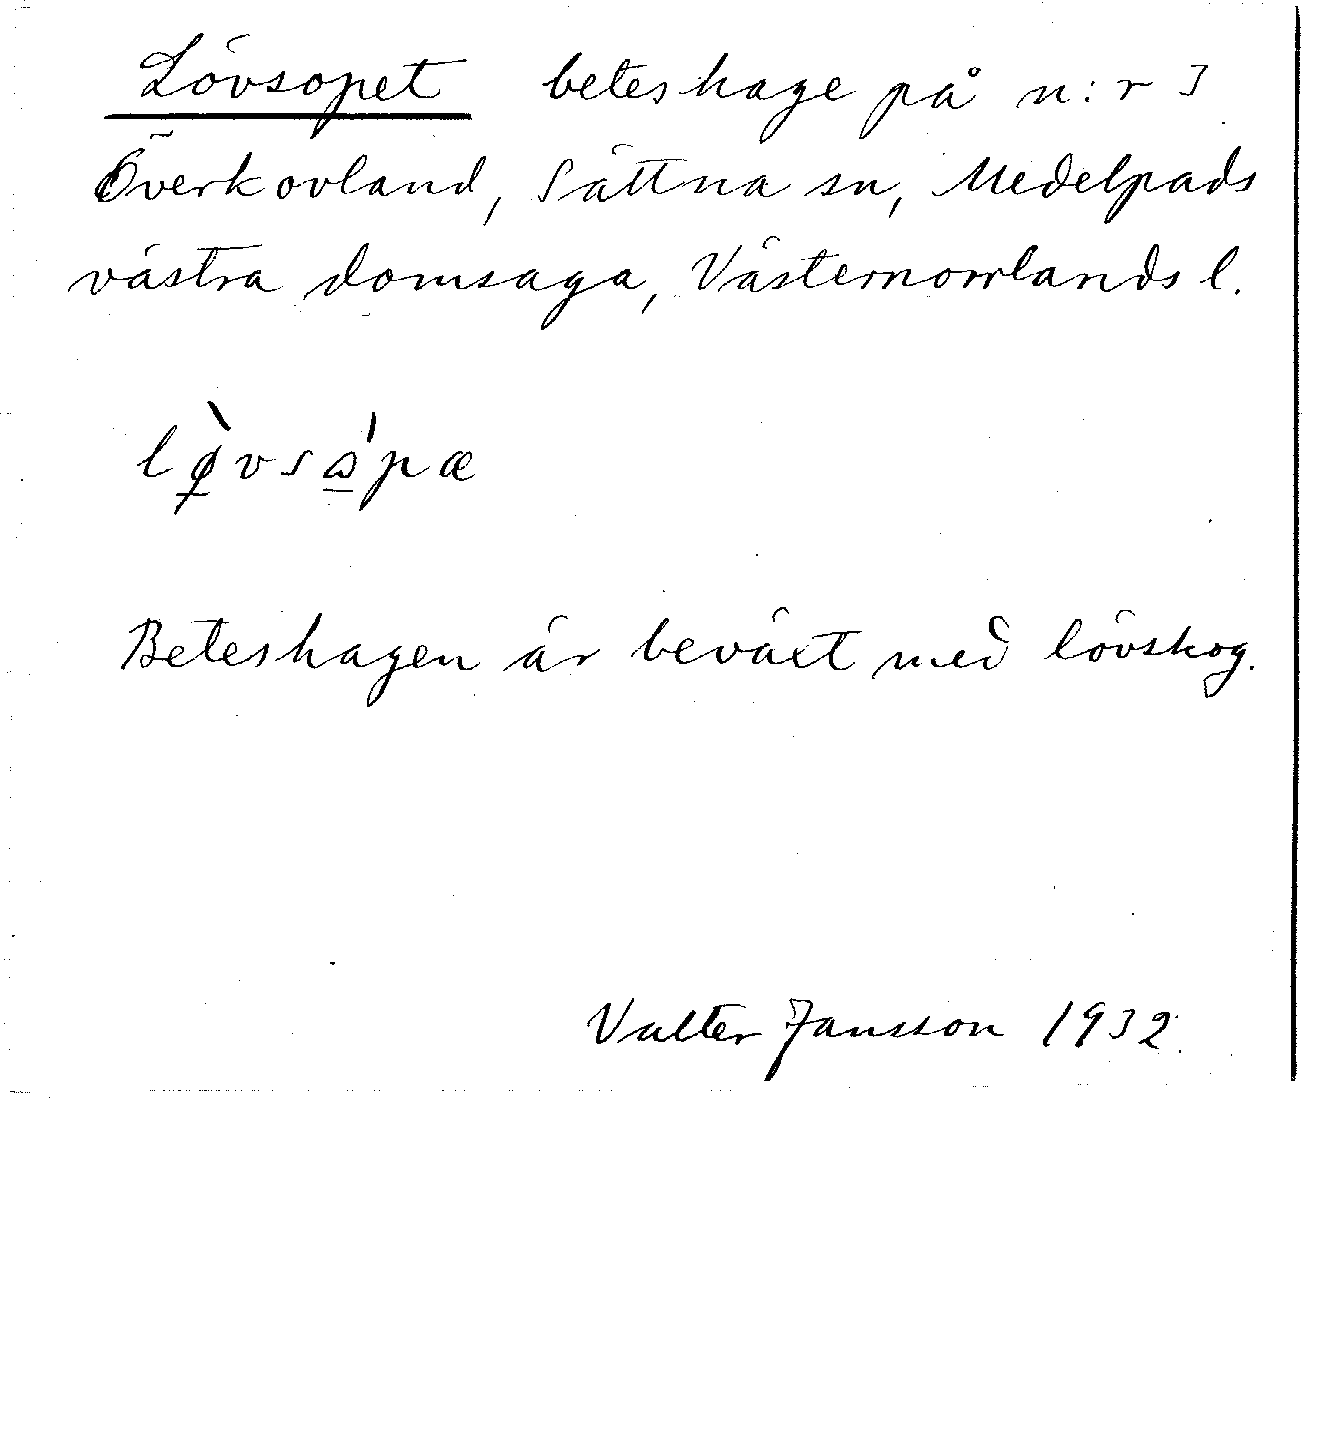 Lövsopet beteshage på n:r 3
Överkovland, Sättna sn, Medelpads
västra domsaga, Västernorrlands l.
Beteshagen är beväxt med lövskog.
Valter Jansson 1932.